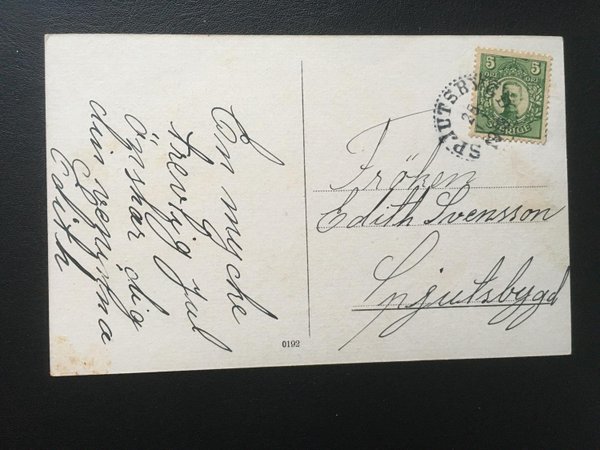 En mycke
trevlig Jul
önskar dig
din veninna
Edith
5 5
ÖRE ÖRE
SVERIGE
SPJUTSBYGD
Fröken
Edith Svensson
Spjutsbygd
0192